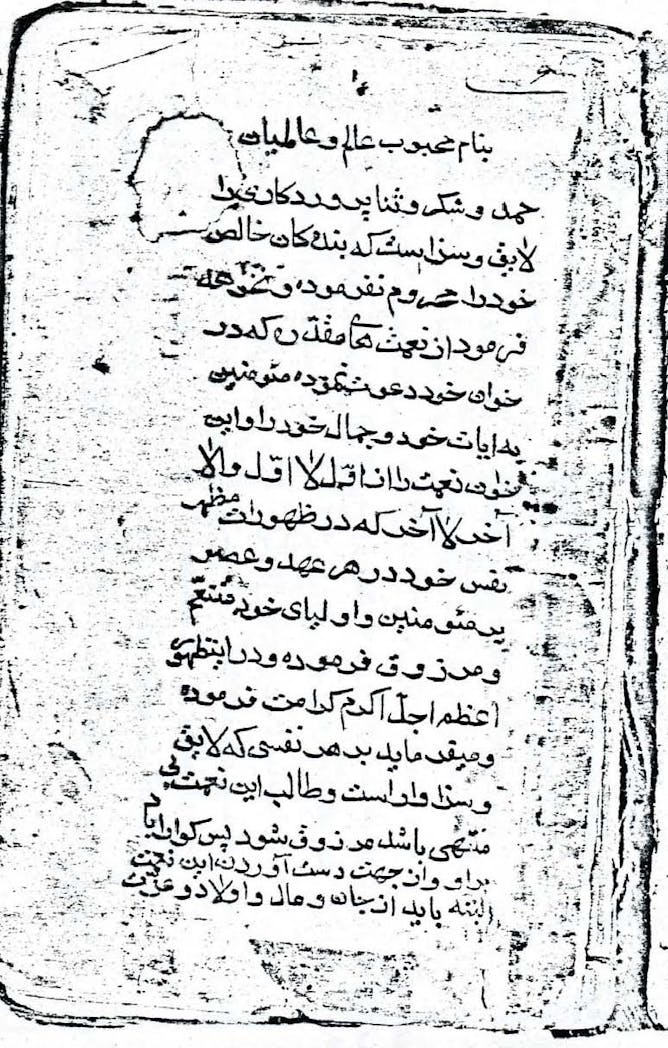 بنام محبوب عالم و عالمیان
حمد و شکر و ثنا پروردکاری را
لایق و سزا است که بنده کان خالص
خود را محروم نفرموده و
فرمود از نعمت های مقدّره که در
خوان خود دعوت نموده مئومنین
به ایات خود و جمال خود را و این
خوان نعمت را از اوّل لا اوّل والا
آخر لا آخر که در ظهورات مظهر
نفس خود در هر عهد و عصر
بر مئومنین و اولیای خود متنعّم
و مرزوق فرموده و در این ظهور
اعظم اجلّ اکرم کرامت فرموده
و میفرماید بر هر نفسی که لایق
و سزاوار است و طالب این نعمت بی
منتهی باشد مرزوق شود پس کوارا باد
براو و از جهت دست آوردن این نعمت
البته باید از جان و مال و اولاد و عزّت